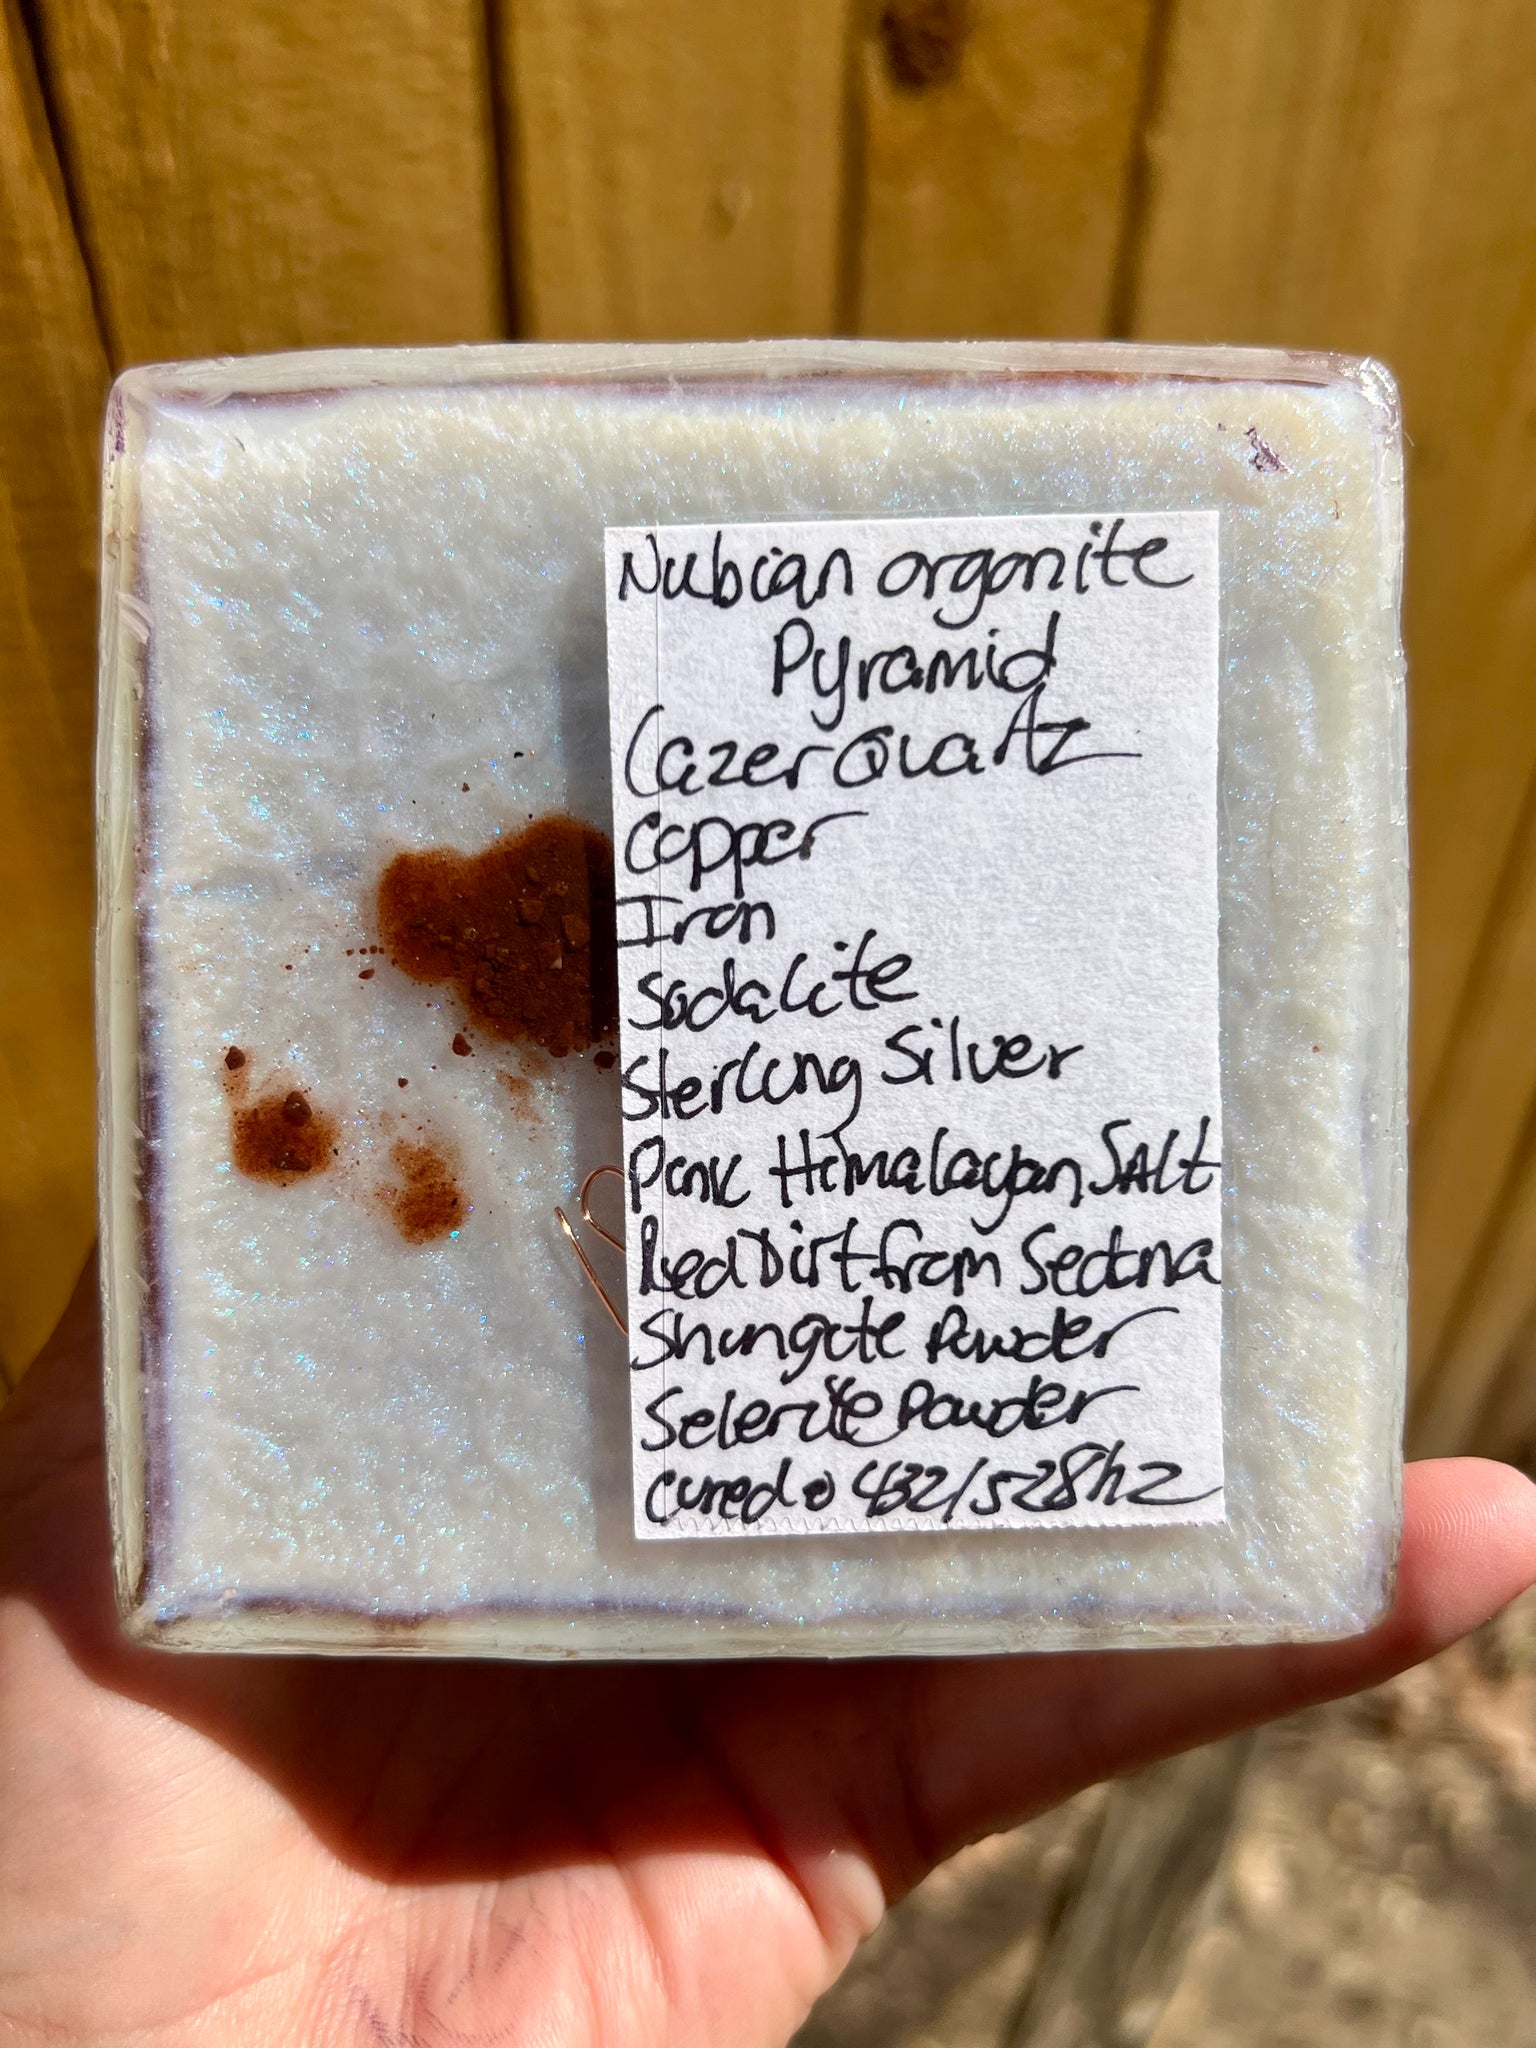 Nubian orgonite
Pyramid
Lazer Quartz
Copper
Iron
Sodalite
Sterling Silver
Pink Himalayan SAlt
Red Dirt from Sedona
Shungite Powder
Selenite Powder
cured @ 432/528hz